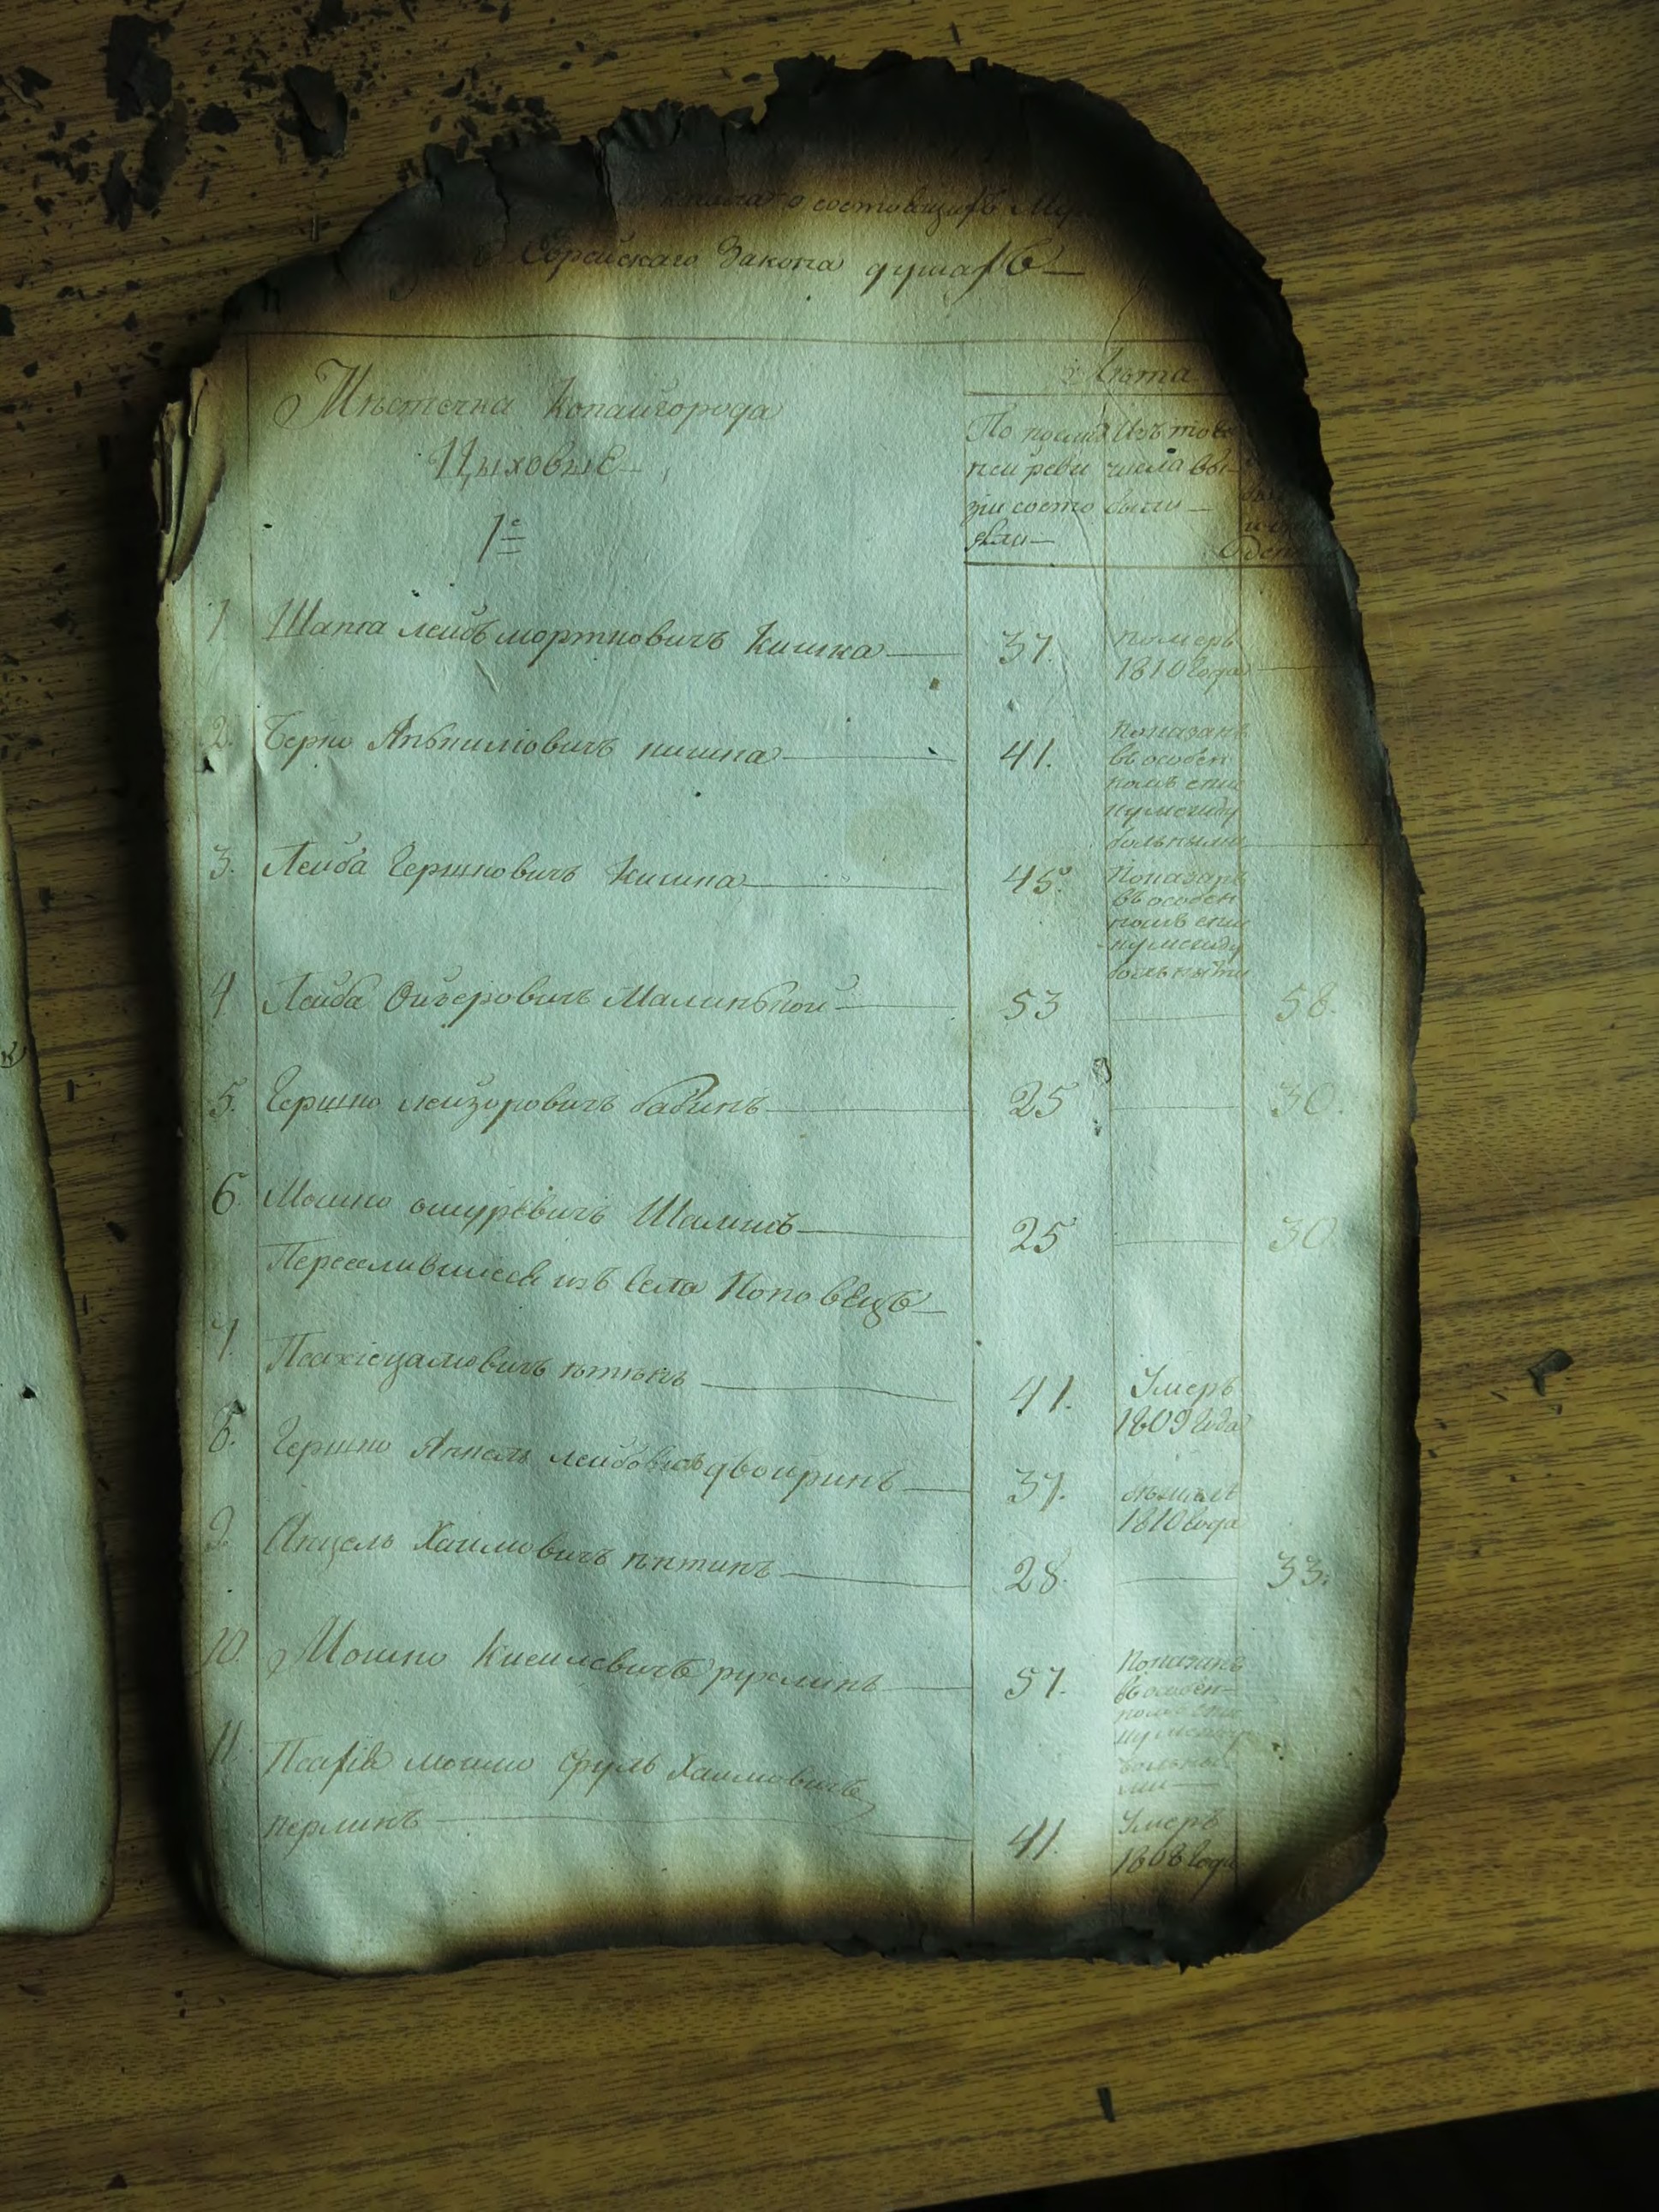 состоящихъ
Еврейскаго Закона душахъ
Мѣстечка Копайгорода
Цыховые
1е
Лѣта
По послѣд
ней реви
зіи состо
яли
Изъ того
числа вы
были
1. Шапса Лейбъ Мортковичъ Кишка 37. Померъ
1810 года
2. Берко Янкилiовичъ кишка 41. Показанъ
въ особен
номъ спи
ку между
больными
3. Лейба Гершковичъ Кишка 45. Показанъ
въ особен
номъ спи
ку между
больными
4 Лейба Ойзеровичъ Малинькой 53 58.
5. Гершко Лейзоровичъ бабинъ 25 30.
6. Мошко ошуревичъ Шамисъ 25 30
Переселившiеся изъ села Поповецъ
7. 41. Умеръ
1809 года
8. Гершко Янкель лейбовичъ двойринъ 37. 1810 года
9. Анцель Хаимовичъ 28. 33.
10. Мошко Кисилевичъ рухлинъ 57. Показанъ
въ особен
номъ спи
ку между
больны
ми
11. мошко Сруль Хаимовичъ
перлинъ 41. Умеръ
1808 года